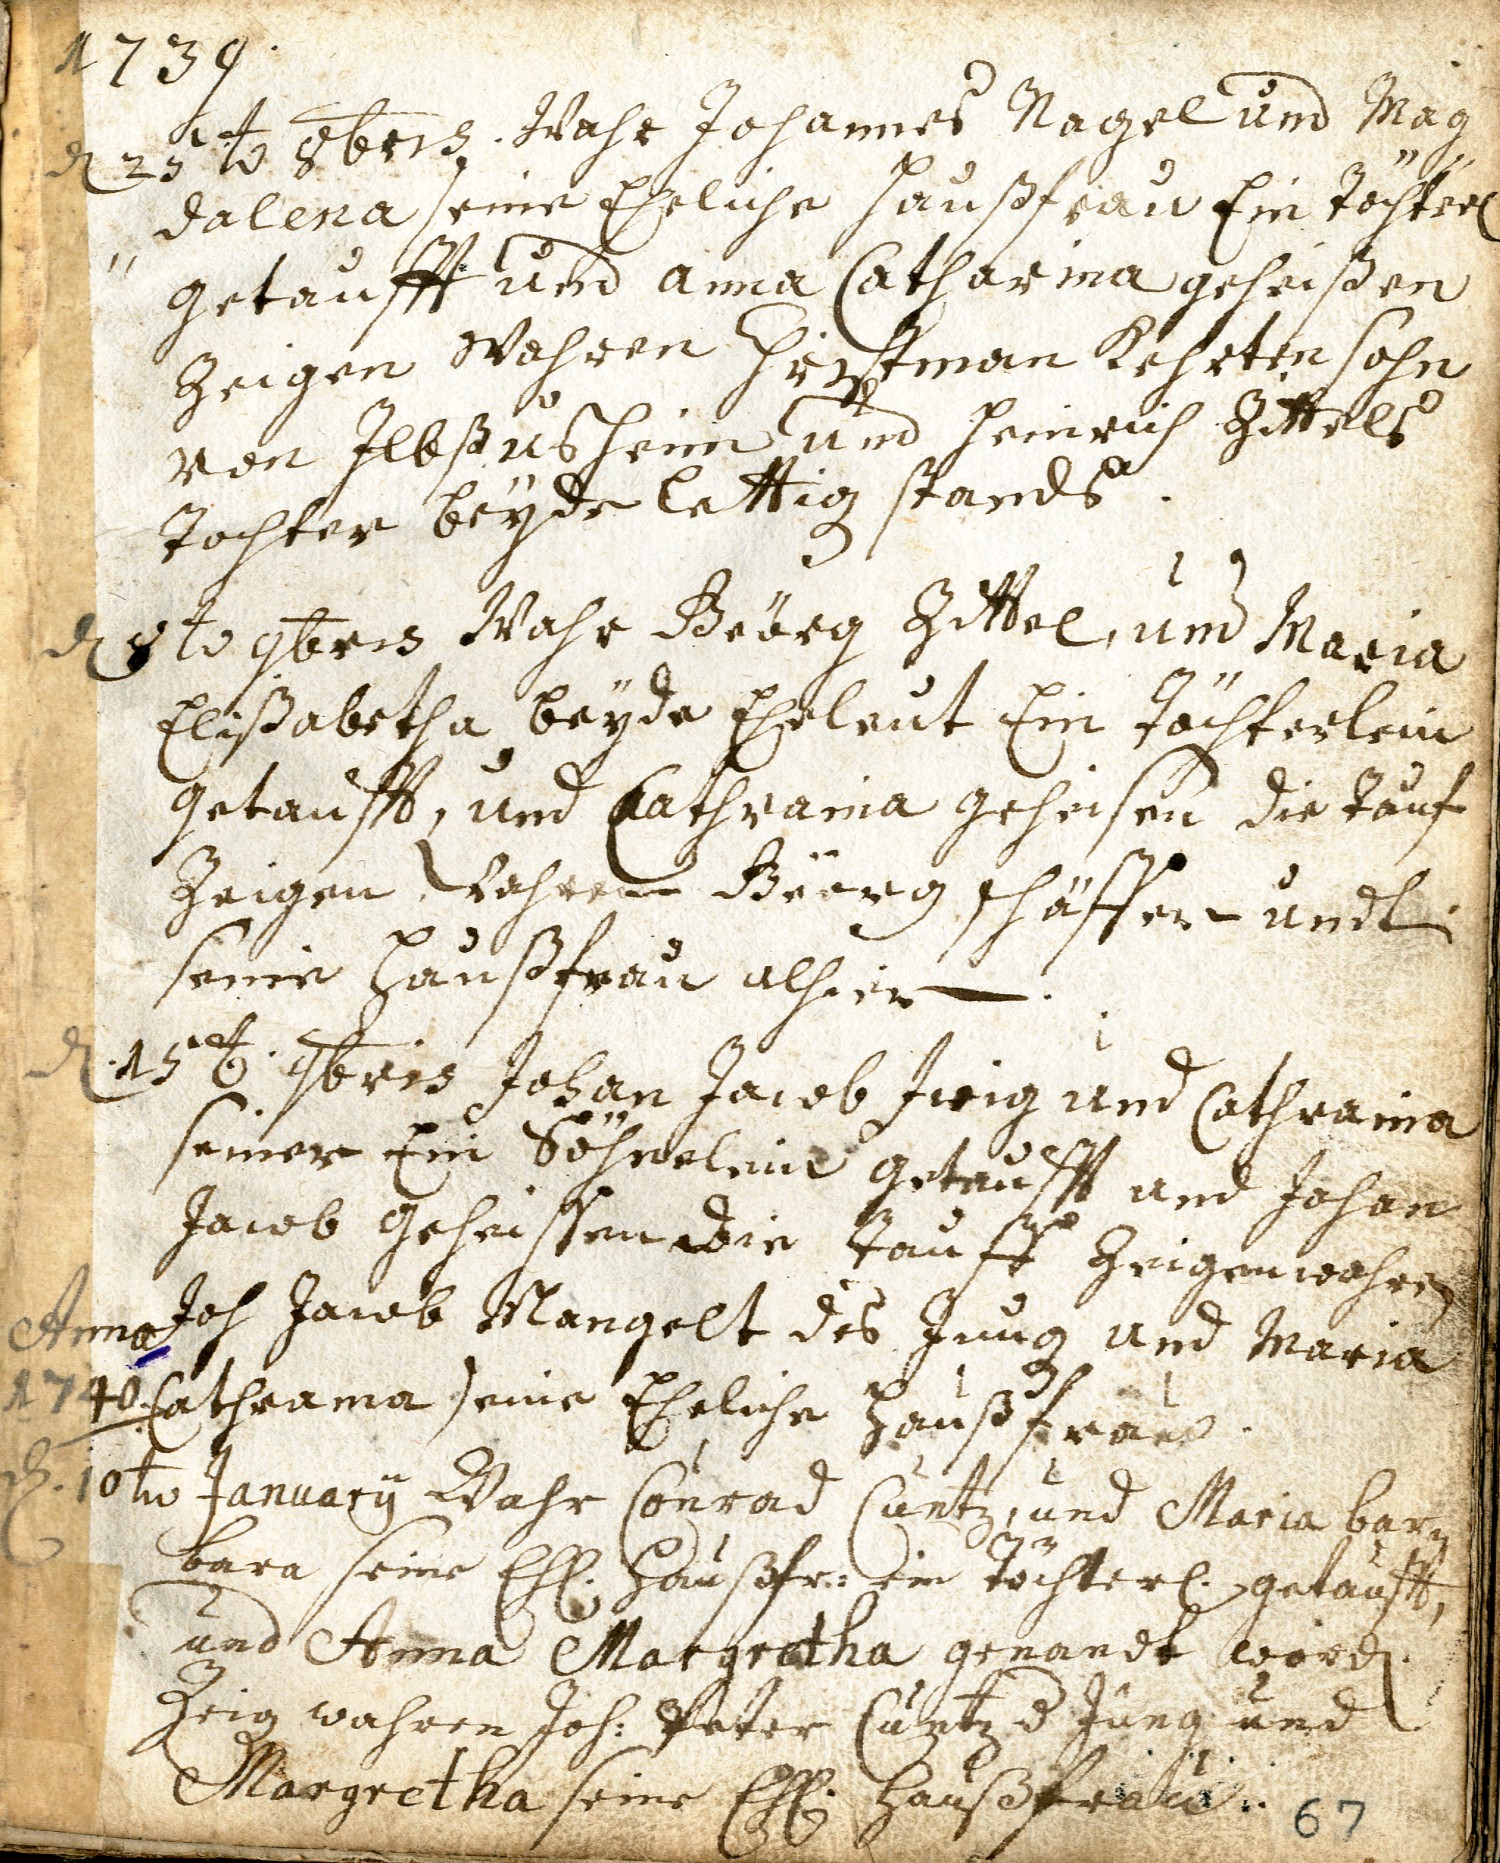 1739.
d 25t 8bris. Wahr Johannes Nagel und Mag
dalena seine Eheliche Haußfrau Ein töchterl
getaufft und anna Catharina geheißen
Zeigen Wahren Hirstman Kehrten sohn
von Ilbßusheim und Heinrich Zittels
tochter beÿde lettig stands.
d 8to 9bris Wahr Geörg Zittel, und Maria
Elißabetha beÿde Eheleut Ein töchterlein
getaufft, und Cathraina geheisen die tauf
Zeigen Wahren Geörg schäffer undt
seine Haußfrau alhier.
d. 15t. 9bris Johan Jacob und Cathraina
seiner Ein Söhnelein getaufft und Johan
Jacob geheissen die tauff Zeigen wahren
Joh Jacob Mangelt des Jung und Maria
Anna
1740. Cathraina seine Eheliche Haußfrau.
d. 10ten Januarÿ Wahr Conrad Cuntz, und Maria bar
bara seine Ehl. Haußfr: ein töchterl. getaufft,
und Anna Margretha genandt word.
Zeig wahren Joh: Peter Cuntz d Jung und
Margretha seine Ehl. Haußfrau.
67